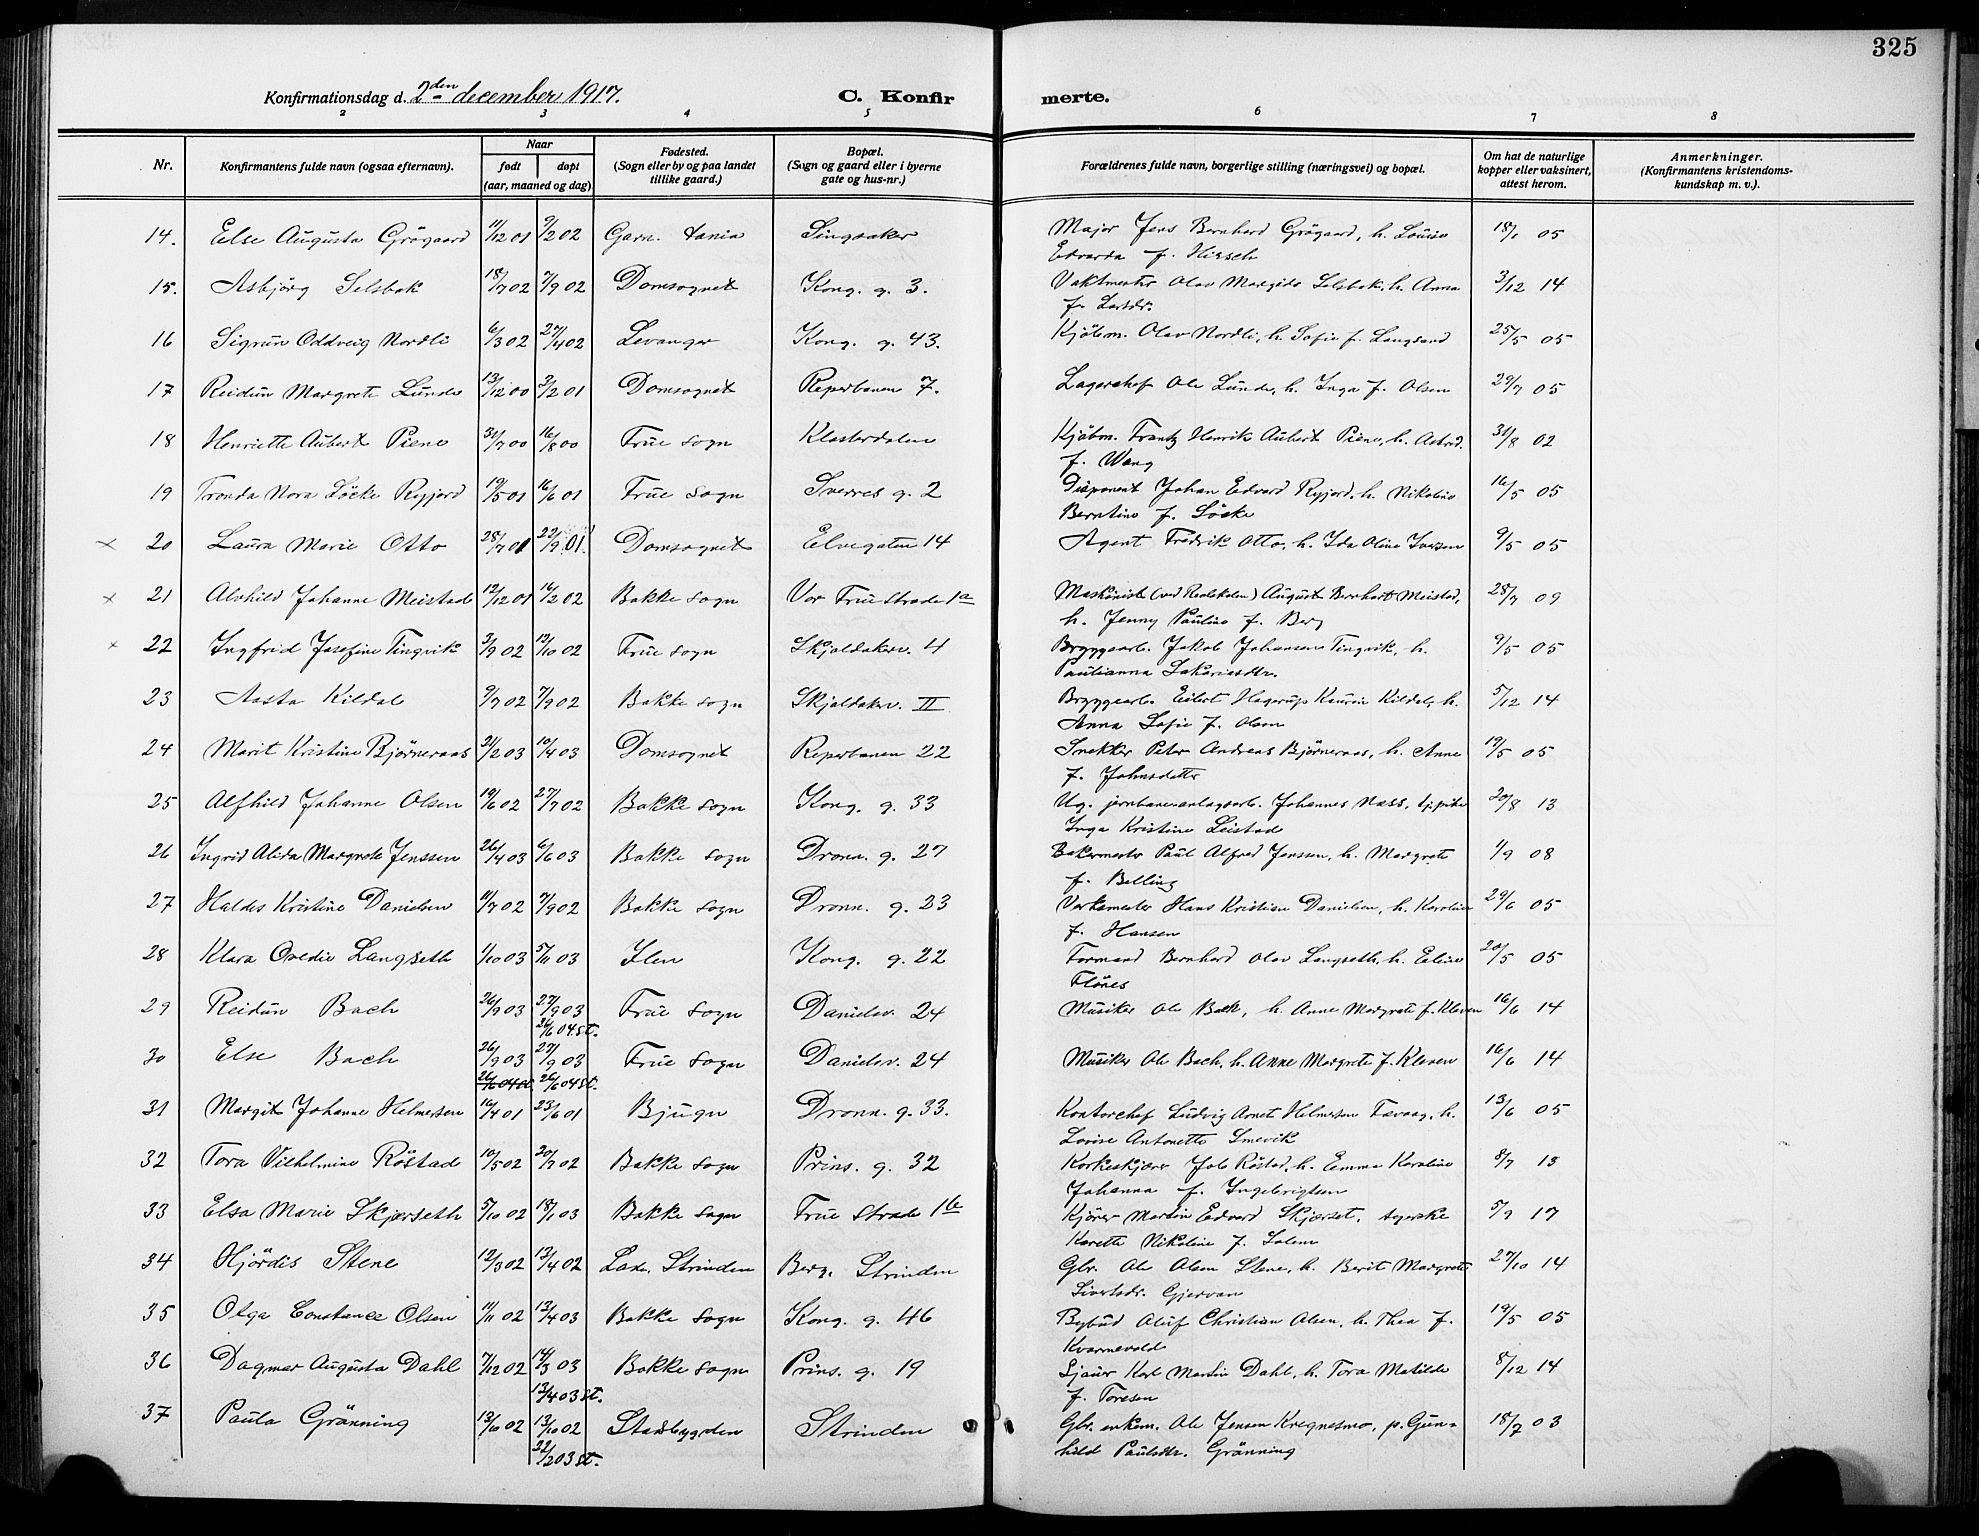 325
Konfirmationsdag d. 2den december 1917.
C. Konfir
merte.
2 3 4 5 6 7 8
Nr.
Konfirmantens fulde navn (ogsaa efternavn).
Naar
født
døpt
(aar, maaned og dag)
Fødested.
(Sogn eller by og paa landet
tillike gaard.)
Bopæl.
(Sogn og gaard eller i byerne
gate og hus-nr.)
Forældrenes fulde navn, borgerlige stilling (næringsvei) og bopæl.
Om hat de naturlige
kopper eller vaksinert,
attest herom.
Anmerkninger.
(Konfirmantens kristendoms-
kundskap m. v.).
14. Else Augusta Grögaard 11/12 01 9/2 02 Garn. Singsaker Major Jens Bernhard Grögaard, h. Louise 18/1 05
Edvarda f. Hirsch
15. Asbjörg Selsbak 18/7 02 7/9 02 Domsognet Kong. g. 3. Vaktmester Olav Selsbak, h. Anna 3/12 14
f. Larsdr.
16 Sigrun Oddveig Nordli 6/3 02 27/4 02 Levanger Kong. g. 43. Kjöbm. Olav Nordli, h. Sofie f. Langsand 25/5 05
17 Reidun Margrete Lunde 13/12 00 3/2 01 Domsognet Reperbanen 7. Lagerchef Ole Lunde, h. Inga f. Olsen 29/7 05
18 Henriette Aubert Piene 31/7 00 16/8 00 Frue sogn Klosterdalen Kjöbm. Frantz Henrik Aubert Piene, h. Astrid 31/8 02
f. Wang
19 Tronda Nora Löcke Ryjord 19/5 01 16/6 01 Frue sogn Sverres g. 2 Disponent Johan Edvard Ryjord, h. Nikoline 16/5 05
Berntine f. Löcke
x 20 Laura Marie Otto 28/7 01 22/9 01. Domsognet Elvegaten 14 Agent Fredrik Otto, h. Ida Oline Iversen 9/5 05
x 21 Alvhild Johanne Meistad 12/12 01 16/2 02 Bakke sogn Vor Frue Stræde 1a Maskinist (ved Realskolen) August Bernhart Meistad, 28/7 09
h. Jenny Pauline f. Berg
x 22 Ingfrid Josefine Tingvik 3/9 02 12/10 02 Frue sogn Skjoldakerv. 4 Bryggearb. Jakob Johansen Tingvik, h. 9/5 05
Paulianna Sakariasdtr.
23 Aasta Kildal 9/7 02 7/9 02 Bakke sogn Skjoldakerv. II Bryggearb. Eilert Hagerup Kaurin Kildal, h. 5/12 14
Anna Sofie f. Olsen
24 Marit Kristine Bjørneraas 21/2 03 10/4 03 Domsognet Reperbanen 22 Snekker Peter Andreas Bjørneraas, h. Anne 19/5 05
f. Johnsdatter
25 Alfhild Johanne Olsen 19/6 02 27/7 02 Bakke sogn Kong. g. 33 Ug. jernbaneanlægsarb. Johannes Næss, og pike 20/8 13
Inga Kristine Leistad
26 Ingrid Alida Margrete Jenssen 26/4 03 6/6 03 Bakke sogn Dronn. g. 27 Bakermester Paul Alfred Jenssen, h. Margrete 1/9 08
f. Belling
27 Haldis Kristine Danielsen 11/7 02 7/9 02 Bakke sogn Dronn. g. 23 Verksmester Hans Kristian Danielsen, h. Karoline 29/6 05
f. Hansen
28 Klara Ovedie Langseth 1/10 03 5/11 03 Ilen Kong. g. 22 Formand Bernhard Olav Langseth, h. Eline 20/5 05
Flönes
29 Reidun Bach 26/9 03 27/9 03 Frue sogn Danielsv. 24 Musiker Ole Bach, h. Anne Margrete f. Kleven 16/6 14
26/6 04 st.
30 Else Bach 26/9 03 27/9 03 Frue sogn Danielsv. 24 Musiker Ole Bach, h. Anne Margrete f. Kleven 16/6 14
26/6 04 st. 26/6 04 st.
31 Margit Johanne Helmersen 16/4 01 23/6 01 Bjugn Dronn. g. 33. Kontorchef Ludvig Arnet Helmersen Tevaag, h. 13/6 05
Lovise Antonette Smevik
32 Tora Vilhelmine Röstad 10/5 02 20/7 02 Bakke sogn Prins. g. 32 Korkeskjærer Job Röstad, h. Emma Karoline 8/7 13
Johanna f. Ingebrigtsen
33 Elsa Marie Skjerseth 5/10 02 18/1 03 Bakke sogn Frue Stræde 1b Kjörer Martin Edvard Skjerset, 5/9 17
Karette Nikoline f. Solem
34 Hjördis Stene 12/3 02 13/4 02 Lade, Strinden Berg. Strinden Gbr. Ole Olsen Stene, h. Berit Margrete 27/10 14
Sivertsdr. Gjervan
35 Olga Constance Olsen 11/11 02 13/4 03 Bakke sogn Kong. g. 46 Bybud Oluf Christian Olsen, h. Thea f. 19/5 05
Kvarnevold
36 Dagmar Augusta Dahl 7/12 02 14/3 03 Bakke sogn Prins. g. 19 Sjauer Karl Martin Dahl, h. Tora Matilde 8/12 14
13/4 03 st. f. Toresen
37 Paula Grönning 13/10 02 13/10 02 Stadsbygden Strinden Gbr. enkem. Ole Jensen Kregnesmo, p. Gun-
22/2 03 st. hild Paulsdtr. Grönning 18/7 03